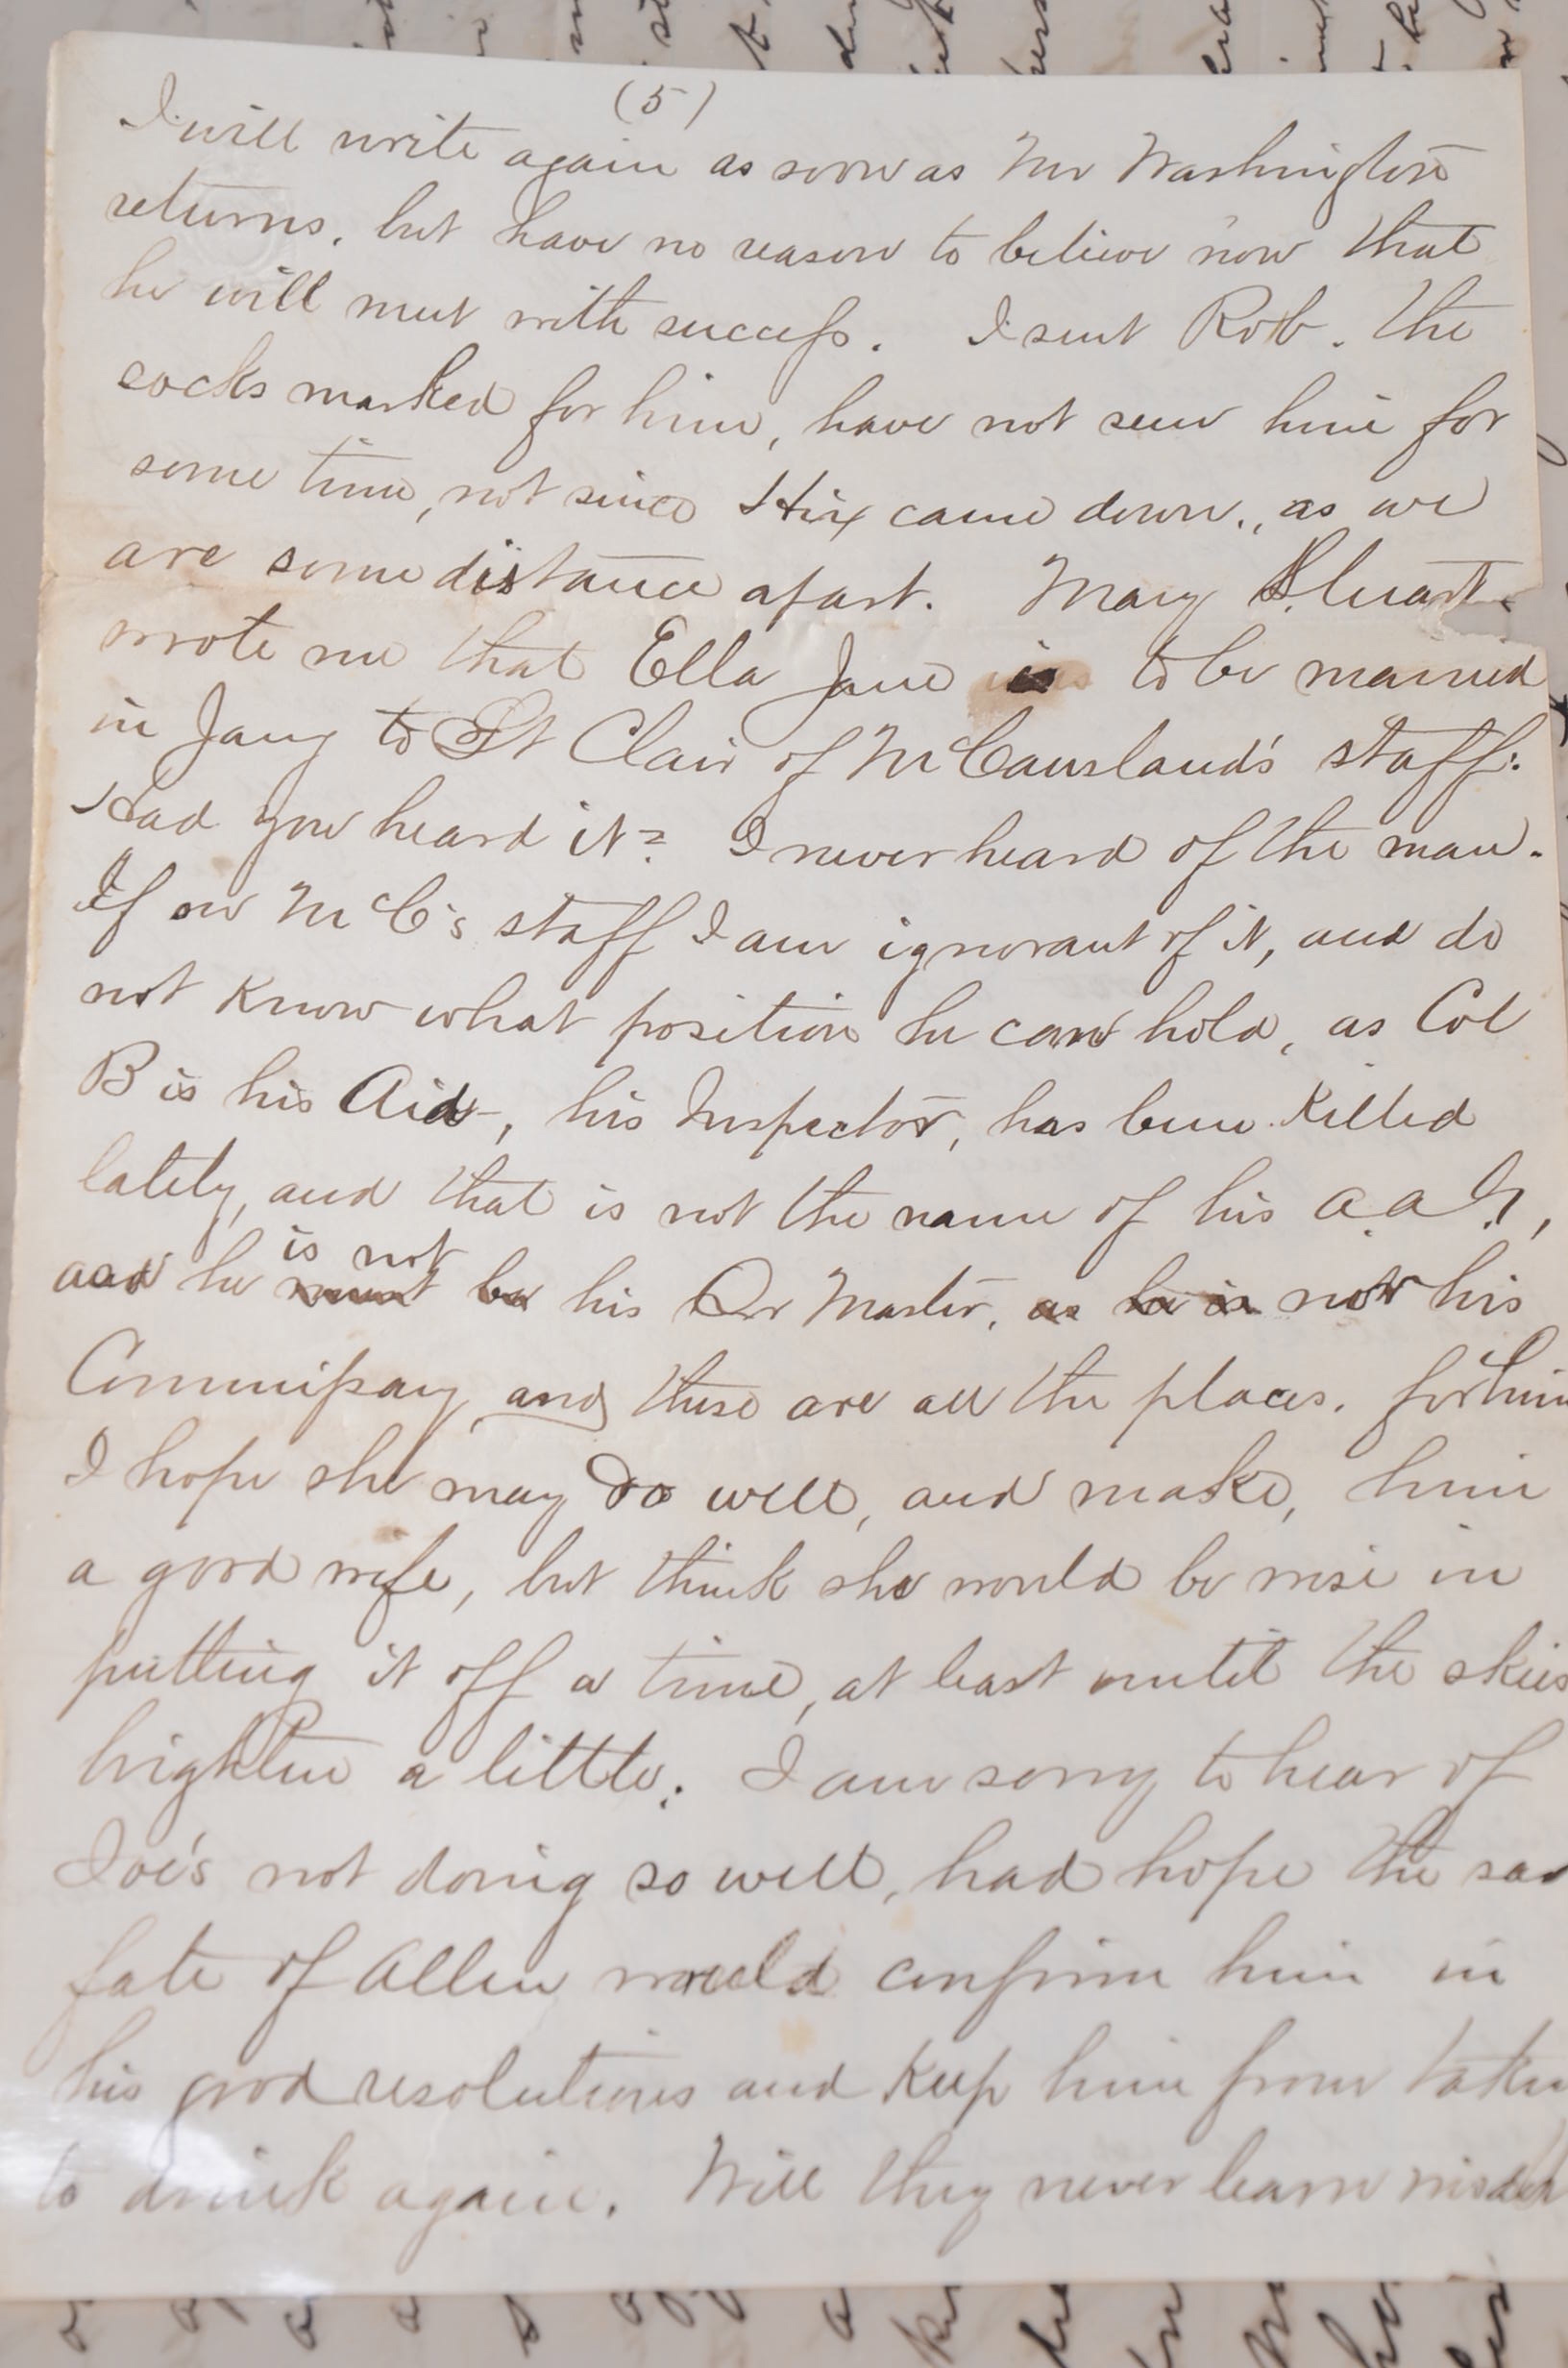 (5)
I will write again as soon as Mr Washington
returns, but have no reason to believe now that
he will meet with success. I sent Rob. the
socks marked for him, have not seen him for
some time, not since Hix came down., as we
are some distance apart. Mary Stuart
wrote me that Ella Jane is to be married
in Jany to St Clair of McCausland's staff.
Had you heard it? I never heard of the man.
If on McC's staff I am ignorant of it, and do
not know what position he can hold, as Col
B is his Aid, his Inspector, has been killed
lately, and that is not the name of his a.a.G,
is not
and he must be his Qr Master, as he is not his
Commissary, and these are all the places. for him
I hope she may do well, and make, him
a good wife, but think she would be wise in
putting it off a time, at least until the skies
brighten a little. I am sorry to hear of
Joe's not doing so well, had hope the sad
fate of Allen would confirm him in
his good resolutions and keep him from
to drink again. Will they never learn